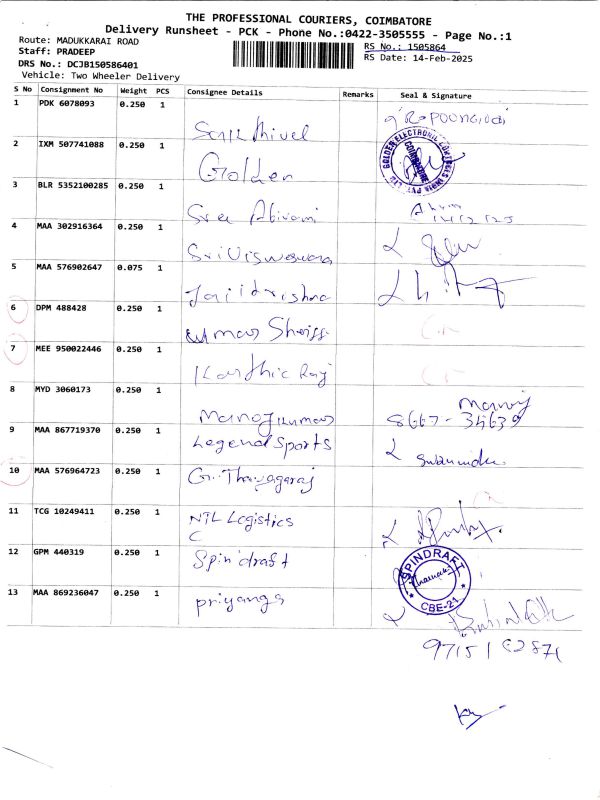 THE PROFESSIONAL COURIERS, COIMBATORE
Delivery Runsheet - PCK - Phone No.:0422-3505555 - Page No.:1
Route: MADUKKARAI ROAD
RS No.: 1505864
Staff: PRADEEP
RS Date: 14-Feb-2025
DRS No.: DCJB150586401
Vehicle: Two Wheeler Delivery
S No Consignment No Weight PCS Consignee Details Remarks Seal & Signature
1 PDK 6078093 0.250 1
Sakthivel
2 IXM 507741088 0.250 1
Golden
3 BLR 5352100285 0.250 1
Sree Abirami
14/2/25
4 MAA 302916364 0.250 1
Sri Visweswara
5 MAA 576902647 0.075 1
Jai Krishna
6 DPM 488428 0.250 1
Kumar
7 MEE 950022446 0.250 1
Karthic Raj
8 MYD 3060173 0.250 1
Manoj Kumar
Manoj
8667-34639
9 MAA 867719370 0.250 1
Legend Sports
10 MAA 576964723 0.250 1
G. Thayagaraj
11 TCG 10249411 0.250 1
NTL Logistics
C
12 GPM 440319 0.250 1
Spindraft
SPINDRAFT
CBE-21
13 MAA 869236047 0.250 1
Priyanga